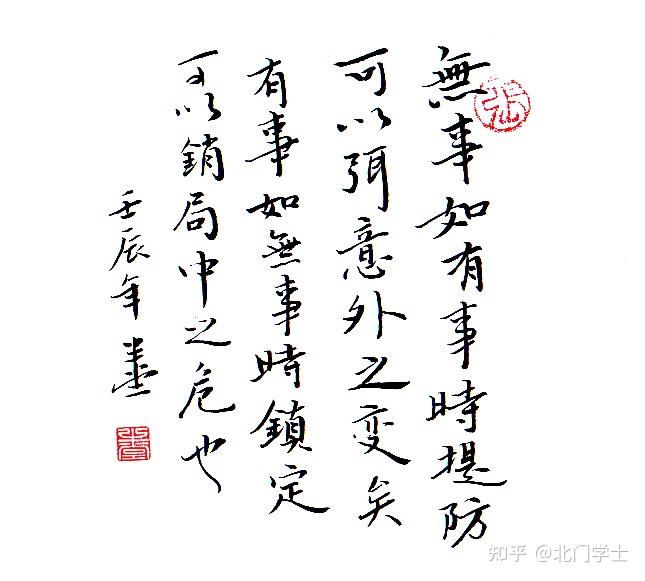 無事如有事時提防
可以弭意外之变矣
有事如無事時鎮定
可以銷局中之危也
壬辰年
知乎 @北门学士